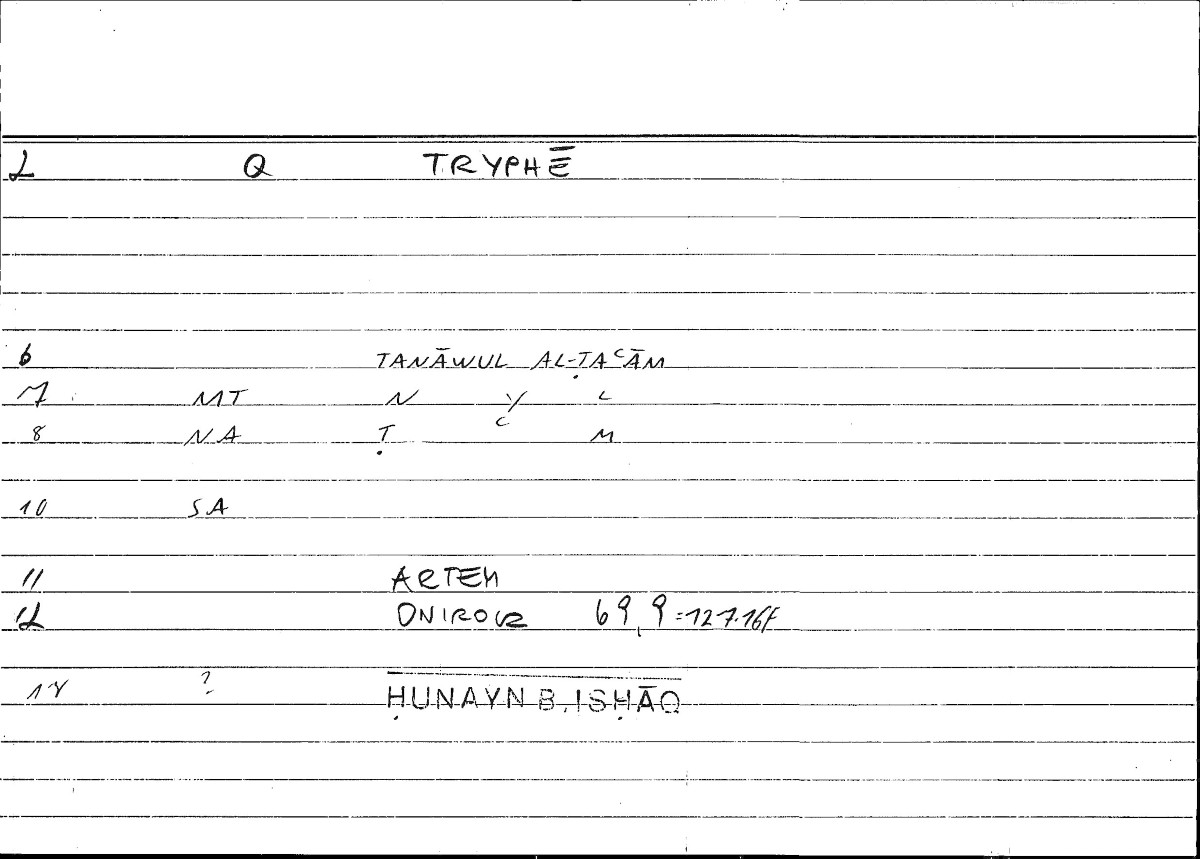 2 Q TRYPHĒ
6 TANĀWUL AL-ṬAᶜĀM
7 MT N Y L
8 NA Ṭ ᶜ M
10 SA
11 ARTEM
12 ONIROCR 69,9=127.16f
14 ? ḤUNAYN B. ISḤĀQ